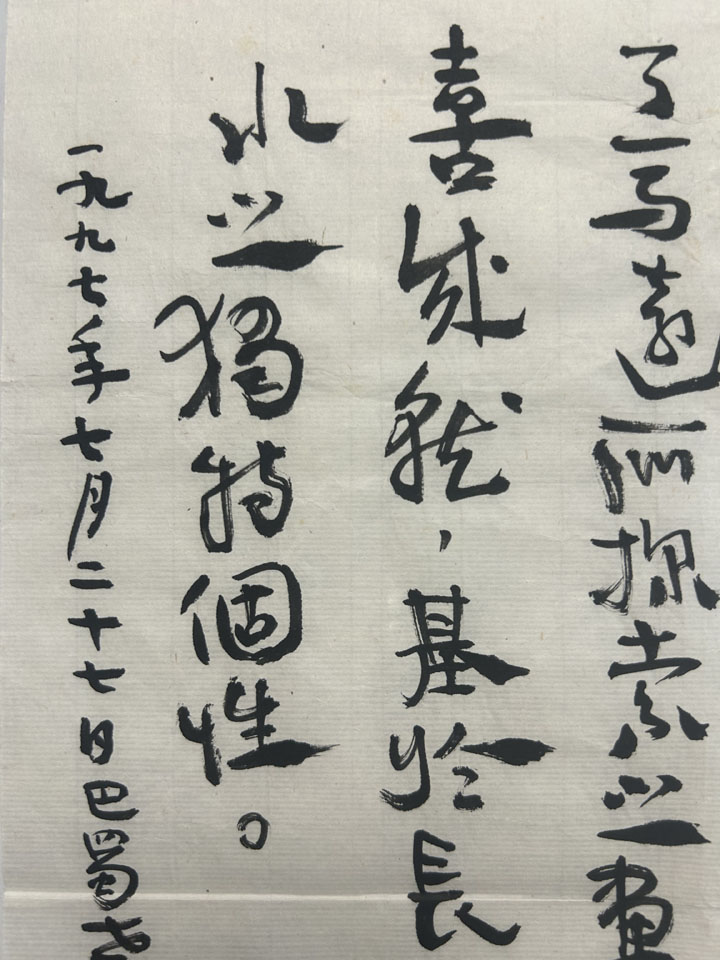 了馬遠所探索之畫
喜成就，基於長
水之獨特個性。
一九九七年七月二十七日巴蜀